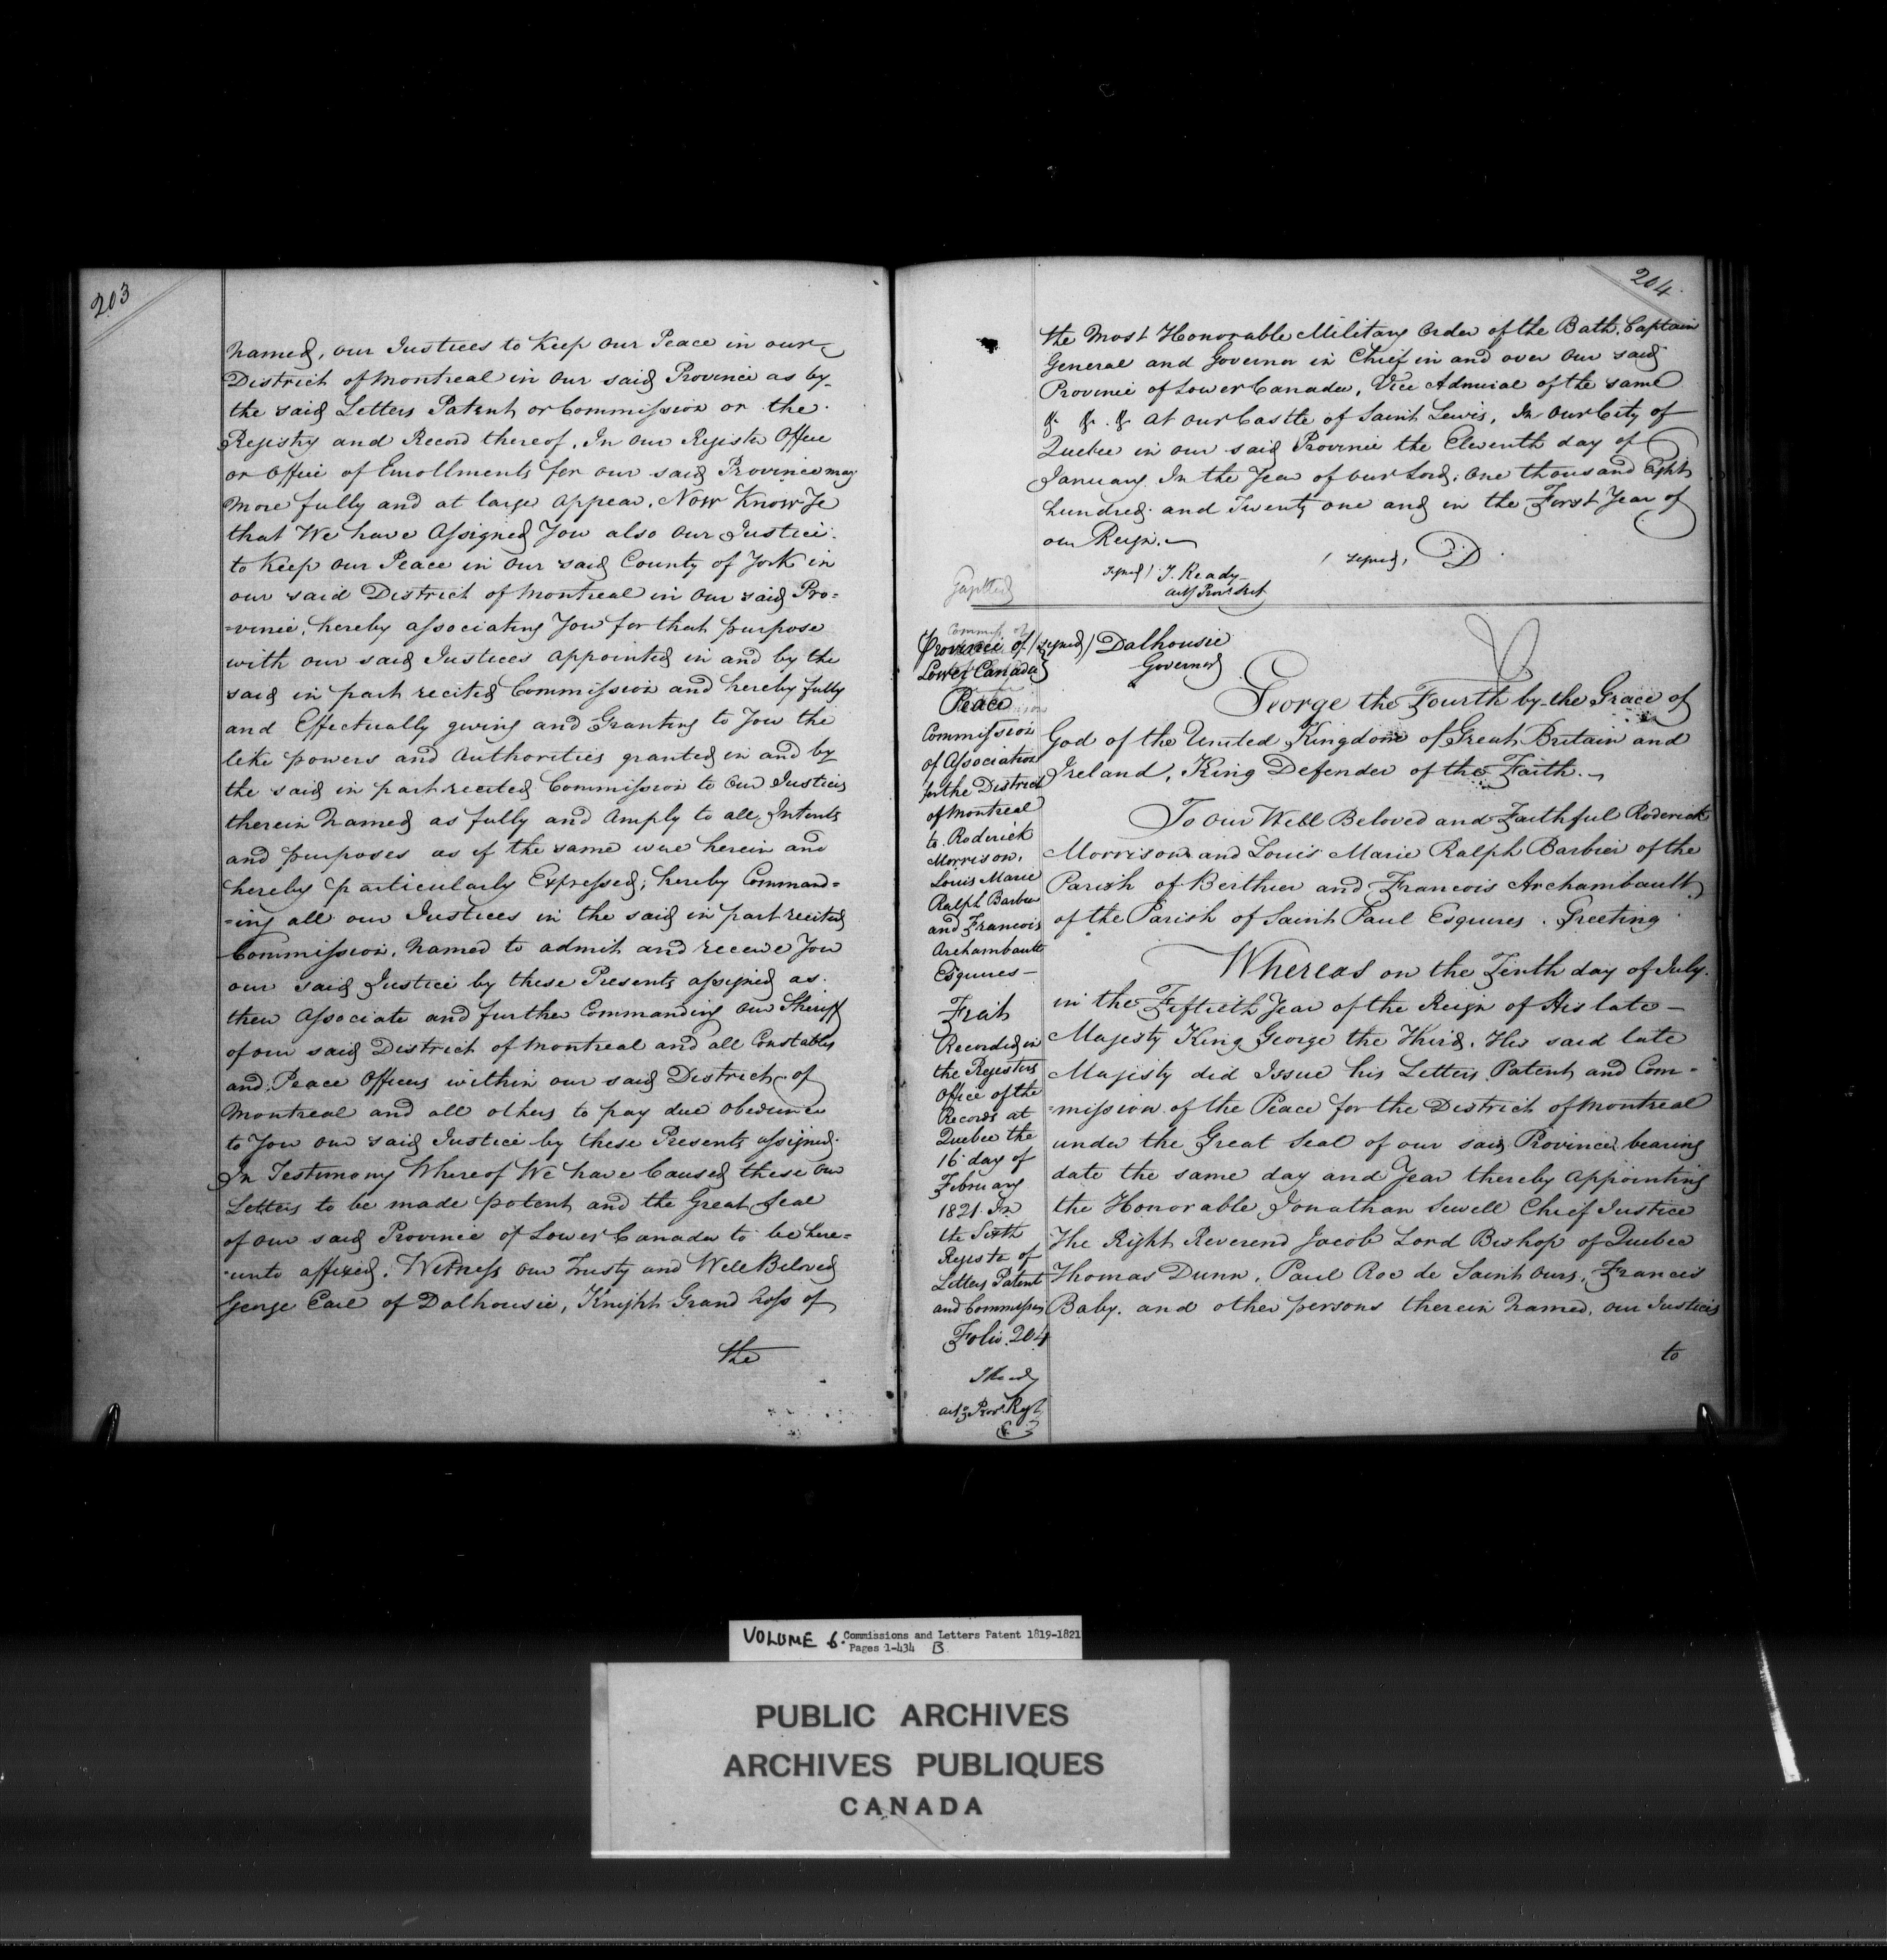 203
Named, our Justices to Keep our Peace in our
District of Montreal in our said Province as by
the said Letters Patent or Commission or the
Registry and Record thereof, In our Register Office
or Office of Enrollments for our said Province may
more fully and at large appear. Now Know Ye
that We have Assigned You also our Justice
to Keep our Peace in our said County of York in
our said District of Montreal in our said Pro=
=vince, hereby associating You for that purpose
with our said Justices appointed in and by the
said in part recited Commission and hereby fully
and Effectually giving and Granting to You the
like powers and authorities granted in and by
the said in part recited Commission to our Justices
therein Named as fully and amply to all Intents
and purposes as if the same were herein and
hereby particularly Expressed, hereby Command=
=ing all our Justices in the said in part recited
Commission, Named to admit and receive You
our said Justice by these Presents assigned as
their Associate and further Commanding our Sheriff
of our said District of Montreal and all Constables
and Peace Officers within our said District of
Montreal and all others to pay due obedience
to You our said Justice by these Presents assigned.
In Testimony Whereof We have Caused these our
Letters to be made patent and the Great Seal
of our said Province of Lower Canada to be here=
=unto affixed. Witness our Trusty and Well Beloved
George Earl of Dalhousie, Knight Grand Cross of
the
204
the Most Honorable Military Order of the Bath, Captain
General and Governor in Chief in and over our said
Province of Lower Canada, Vice Admiral of the same
&. &. &. at our Castle of Saint Lewis, In our City of
Quebec in our said Province the Eleventh day of
January In the Year of our Lord, One thousand Eight
hundred and Twenty one and in the First Year of
our Reign.
(signed, D.
signed) J. Ready
actg Provl Sect
Province of
Lower Canada
(signed) Dalhousie
Governor
Peace
Commission
of Association
for the District
of Montreal
to Roderick
Morrison,
Louis Marie
Ralph Barbier
and Francois
Archambault
Esquires
Fiat
Recorded in
the Registers
Office of the
Records at
Quebec the
16 day of
February
1821. In
the Sixth
Register of
Letters Patent
and Commission
Folio 204
J Ready
actg Provl Regt
George the Fourth by the Grace of
God of the United Kingdom of Great Britain and
Ireland, King Defender of the Faith.
To our Well Beloved and Faithful Roderick
Morrison and Louis Marie Ralph Barbier of the
Parish of Berthier and Francois Archambault
of the Parish of Saint Paul Esquires. Greeting
Whereas on the Tenth day of July
in the Fiftieth Year of the Reign of His late
Majesty King George the Third, His said late
Majesty did Issue his Letters Patent and Com=
=mission of the Peace for the District of Montreal
under the Great Seal of our said Province bearing
date the same day and Year thereby appointing
the Honorable Jonathan Sewell Chief Justice
The Right Reverend Jacob Lord Bishop of Quebec
Thomas Dunn, Paul Roc de Saint Ours, Francis
Baby, and other persons therein Named, our Justices
to
VOLUME 6. Commissions and Letters Patent 1819-1821
Pages 1-434 B
PUBLIC ARCHIVES
ARCHIVES PUBLIQUES
CANADA